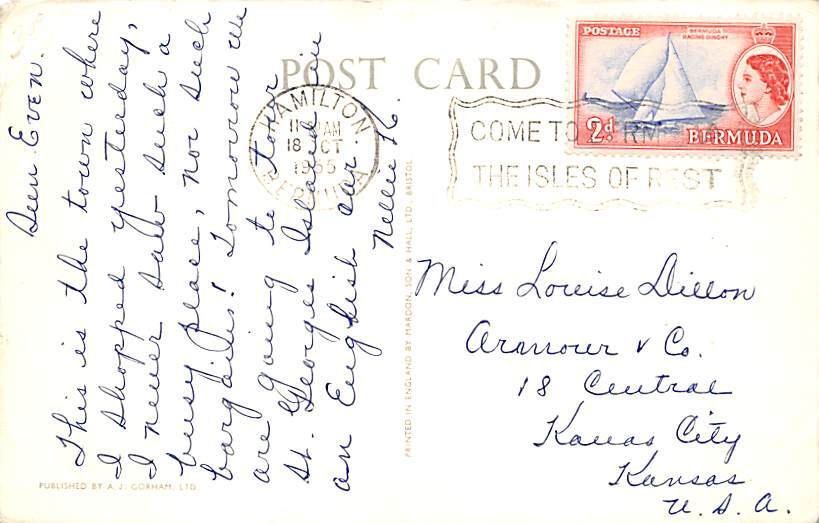 POST CARD
POSTAGE
BERMUDA
RACING DINGHY
2d.
BERMUDA
HAMILTON
AM
18 OCT
1955
BERMUDA
COME TO BERM
THE ISLES OF REST
Sun. Even.
This is the town where
I shopped yesterday,
I never saw such a
busy place, nor such
bargains! Tomorrow we
are going to tour
St. Georges Island in
an English car.
Nellie K.
Miss Louise Dillon
Armour & Co.
18 Central
Kansas City
Kansas
U. S. A.
PRINTED IN ENGLAND BY MARDON, SON & HALL, LTD., BRISTOL
PUBLISHED BY A. J. GORHAM, LTD.